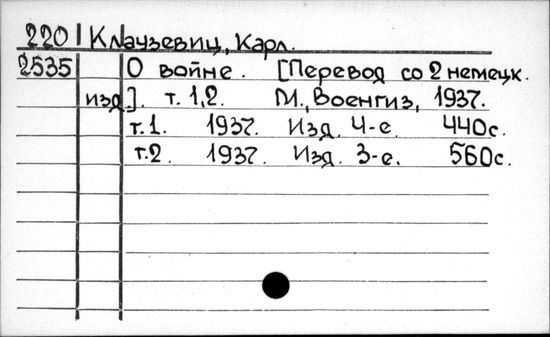 220 Клаузевиц, Карл.
2535 О войне. [Перевод со 2 немецк.
изд]. т. 1,2. М., Воениз, 1937.
т.1. 1937. Изд. 4-е. 440с.
т.2. 1937. Изд. 3-е. 560с.